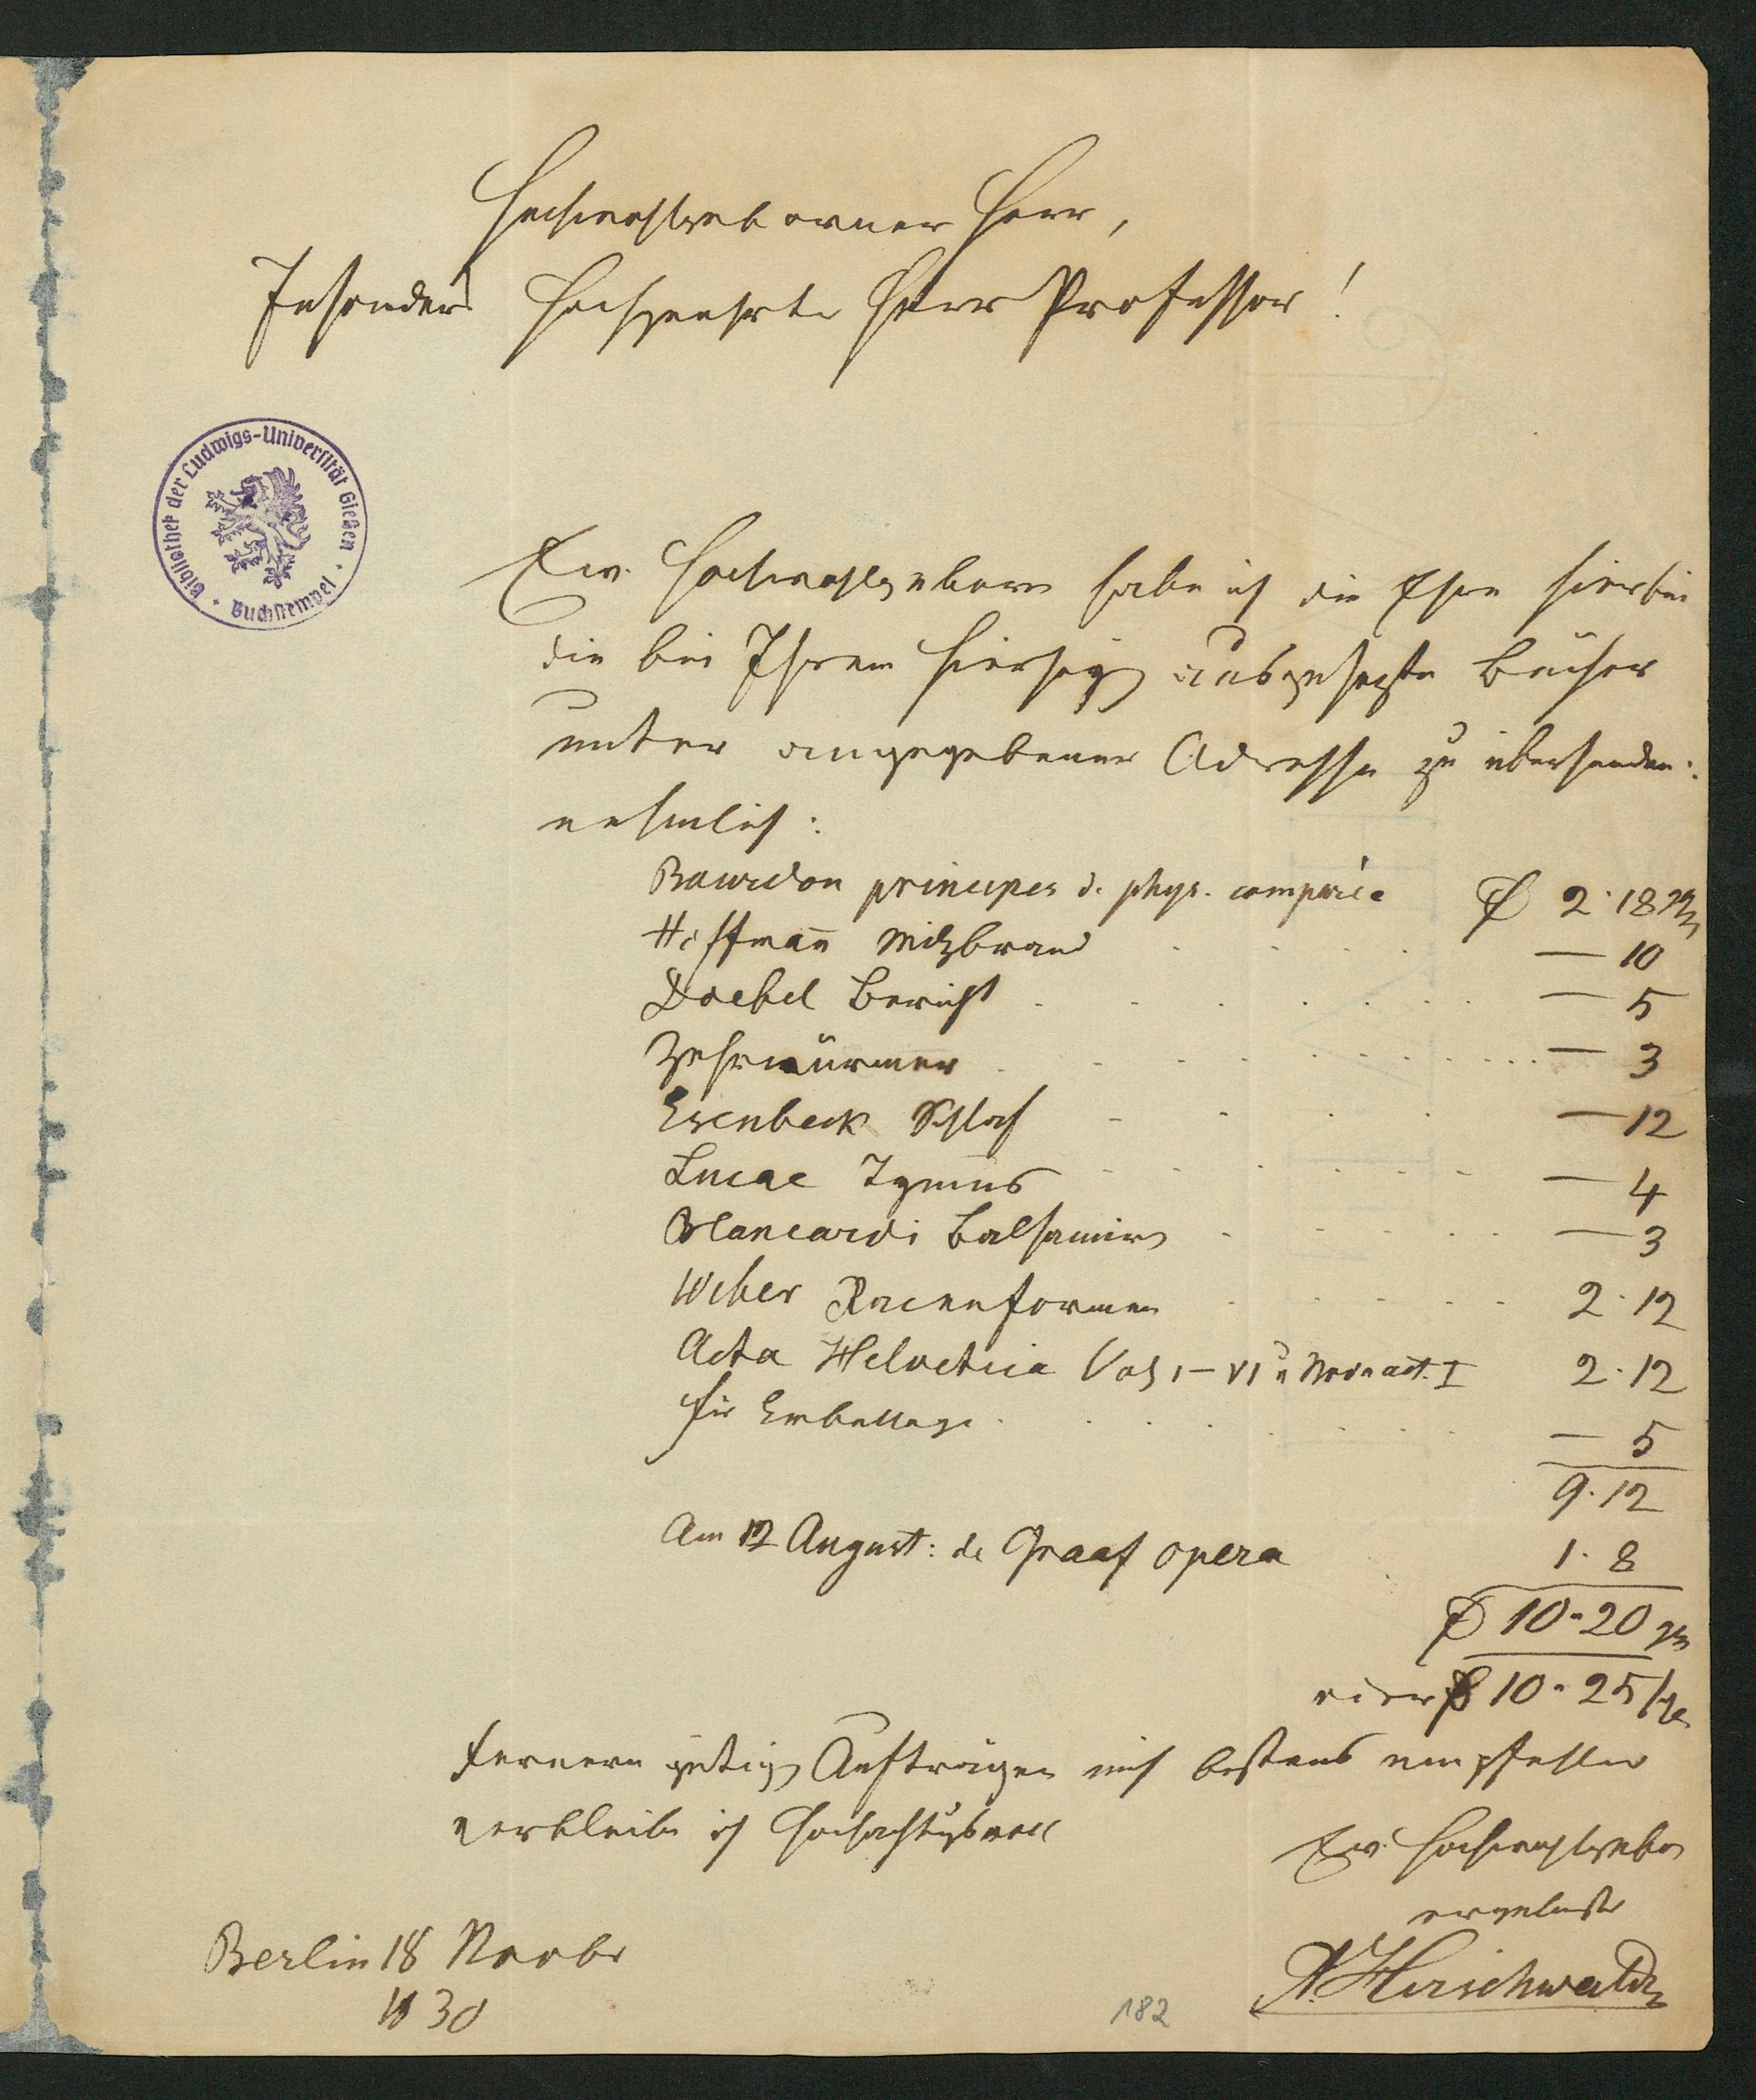 Hochwohlgeborner Herr,
Insonders Hochgeehrter Herr Professor!
Bibliothek der Ludwigs-Universität Gießen
Buchstempel
Ew. Hochwohlgeboren habe ich die Ehre hierbei
die bei Ihrem Hiersein ausgesuchten Bücher
unter angegebener Adresse zu übersenden:
nehmlich:
Bourdon principes d. phys. comparée ₰ 2. 18 Sgr
Hoffmann Milzbrand — 10
Doebel Bericht — 5
Zehrwürmer — 3
Esenbeck Schlaf — 12
Lucae Tymus — 4
Blancardi Balsamiren — 3
Weber Racenformen 2. 12
Acta Helvetica Vol I–VI u Nova act. I 2. 12
für Emballage — 5
9. 12
Am 12 August: de Graaf opera 1. 8
10. 20
oder 10. 25
Fernern gütigen Aufträgen mich bestens empfehlend
verbleibe ich Hochachtungsvoll
Ew Hochwohlgeboren
ergebenster
A. Hirschwald
Berlin 18 Novbr
1830
182